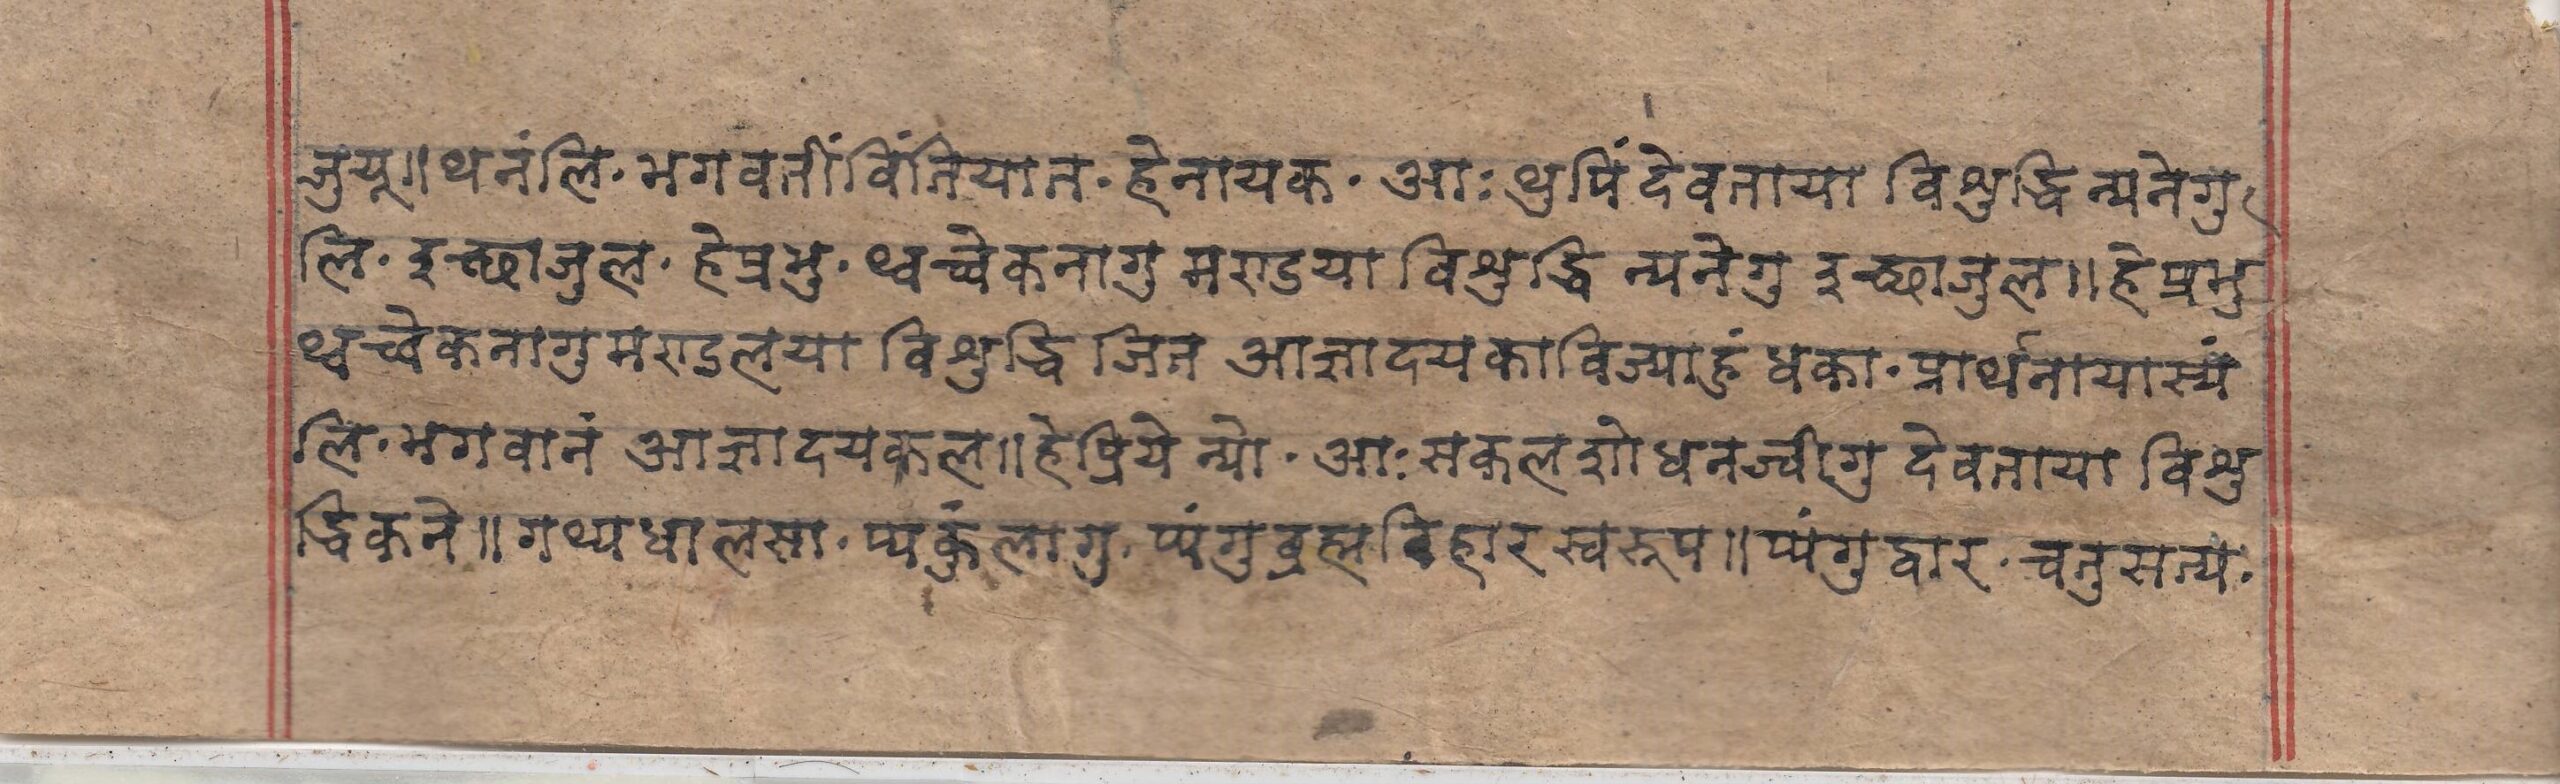 जुयू॥थनंलि·भगवतीं विंतियात·हेनायक·आः थुपिं देवताया विशुद्धि न्यनेगु
लि·इच्छाजुल·हेप्रभु·थ्वच्वेकनागु मण्डया विशुद्धि न्यनेगु इच्छाजुल॥हेप्रभु
थ्वच्वेकनागुमण्डलया विशुद्धि जित आज्ञादयकाविज्याहुं धका·प्रार्थनायास्यं
लि·भगवानं आज्ञादयकल॥हेप्रिये न्यो·आः सकलशोधनज्वीगु देवताया विशु
द्धिकने॥गथ्यधालसा·प्यकुंलागु·प्यंगुब्रह्मविहारस्वरूप॥प्यंगुद्वार·चतुसत्य·